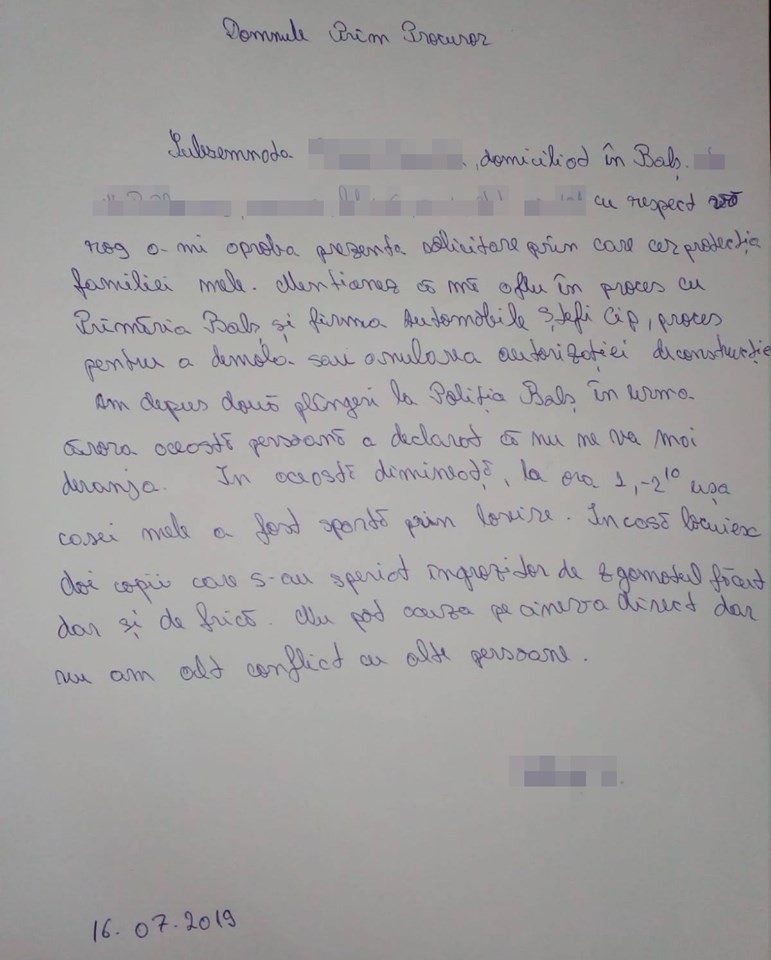 Domnule Prim Procuror
Subsemnata , domiciliat în Balș.
cu respect vă
rog a-mi aproba prezenta solicitare prin care cer protecția
familiei mele. Menționez că mă aflu în proces cu
Primăria Balș și firma Automobile Ștefi Cip, proces
pentru a demola sau anularea autorizației deconstrucție
Am depus două plângeri la Poliția Balș în urma
cărora această persoană a declarat că nu ne va mai
deranja. In această dimineață, la ora 1,-2¹⁰ ușa
casei mele a fost spartă prin lovire. In casă locuiesc
doi copii care s-au speriat îngrozitor de zgomotul făcut
dar și de frică. Nu pot acuza pe cineva direct dar
nu am alt conflict cu alte persoane.
16.07.2019